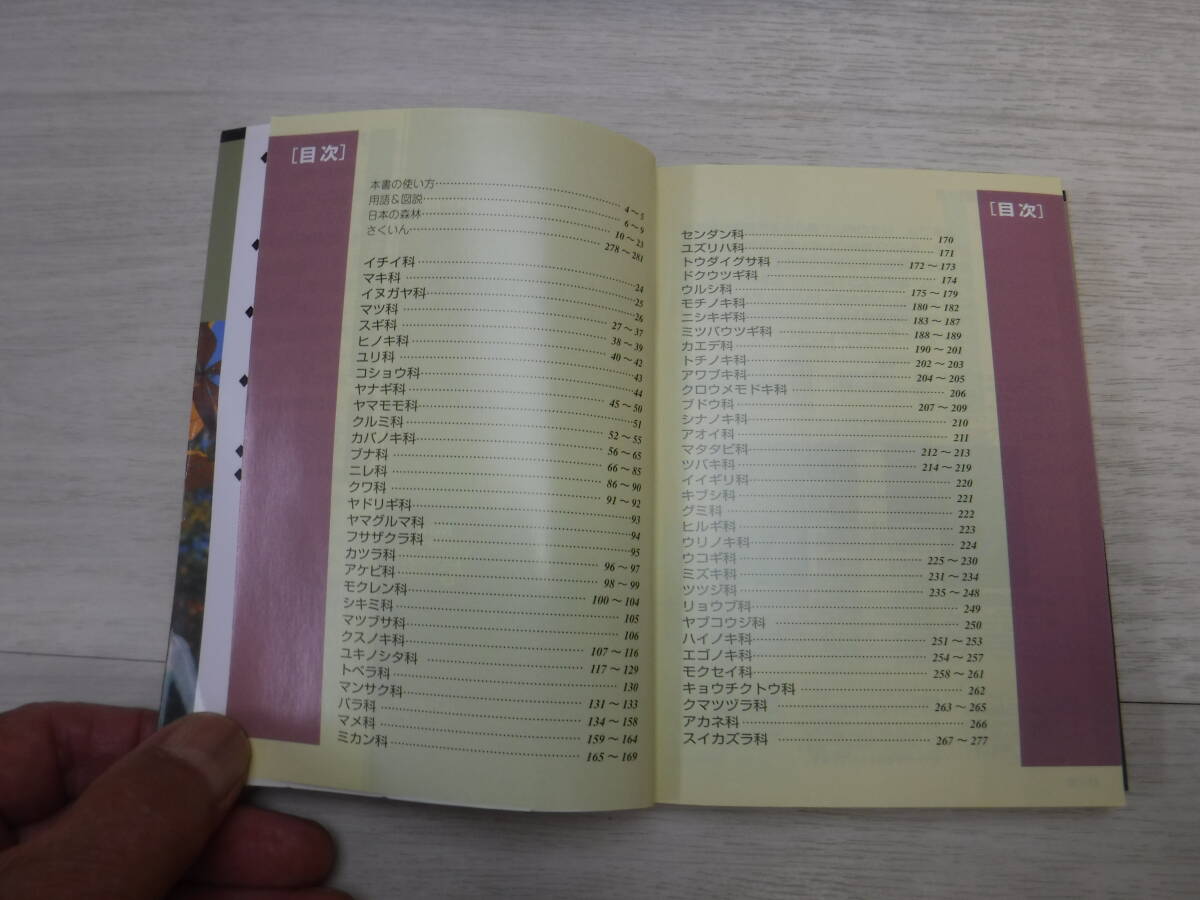 ［目次］
本書の使い方 4～5
用語＆図説 6～9
日本の森林 10～23
さくいん 278～281
イチイ科 24
マキ科 25
イヌガヤ科 26
マツ科 27～37
スギ科 38～39
ヒノキ科 40～42
ユリ科 43
コショウ科 44
ヤナギ科 45～50
ヤマモモ科 51
クルミ科 52～55
カバノキ科 56～65
ブナ科 66～85
ニレ科 86～90
クワ科 91～92
ヤドリギ科 93
ヤマグルマ科 94
フサザクラ科 95
カツラ科 96～97
アケビ科 98～99
モクレン科 100～104
シキミ科 105
マツブサ科 106
クスノキ科 107～116
ユキノシタ科 117～129
トベラ科 130
マンサク科 131～133
バラ科 134～158
マメ科 159～164
ミカン科 165～169
［目次］
センダン科 170
ユズリハ科 171
トウダイグサ科 172～173
ドクウツギ科 174
ウルシ科 175～179
モチノキ科 180～182
ニシキギ科 183～187
ミツバウツギ科 188～189
カエデ科 190～201
トチノキ科 202～203
アワブキ科 204～205
クロウメモドキ科 206
ブドウ科 207～209
シナノキ科 210
アオイ科 211
マタタビ科 212～213
ツバキ科 214～219
イイギリ科 220
キブシ科 221
グミ科 222
ヒルギ科 223
ウリノキ科 224
ウコギ科 225～230
ミズキ科 231～234
ツツジ科 235～248
リョウブ科 249
ヤブコウジ科 250
ハイノキ科 251～253
エゴノキ科 254～257
モクセイ科 258～261
キョウチクトウ科 262
クマツヅラ科 263～265
アカネ科 266
スイカズラ科 267～277